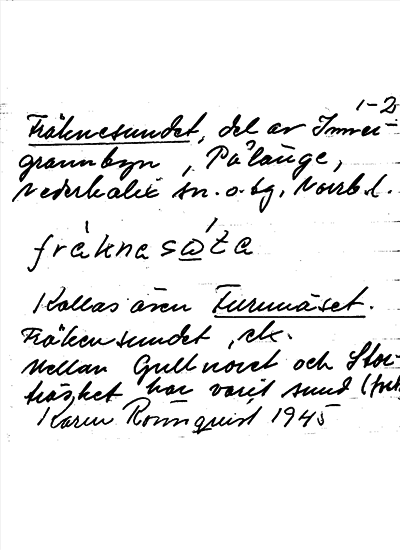 1-2
Fräknesundet, del av Inner-
grannbyn, Pålänge,
Nederkalix sn. o. tg, Norrb.l.
fràkna sá̱ta
Kallas även Furunäset.
Fräkensundet, sk.
Mellan Gullnoret och Stor-
träsket har varit sund (
Karin Rönnquist 1945